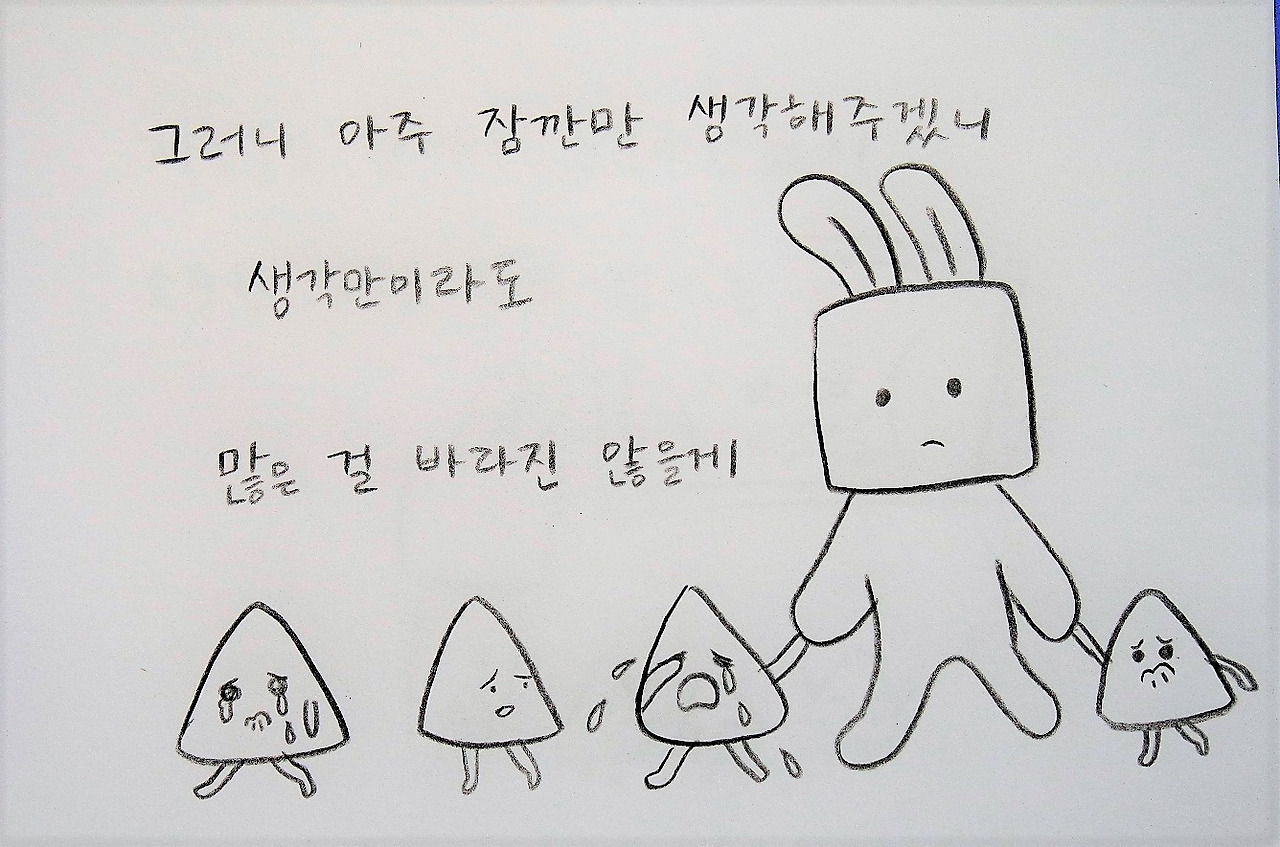 그러니 아주 잠깐만 생각해주겠니
생각만이라도
많은 걸 바라진 않을게